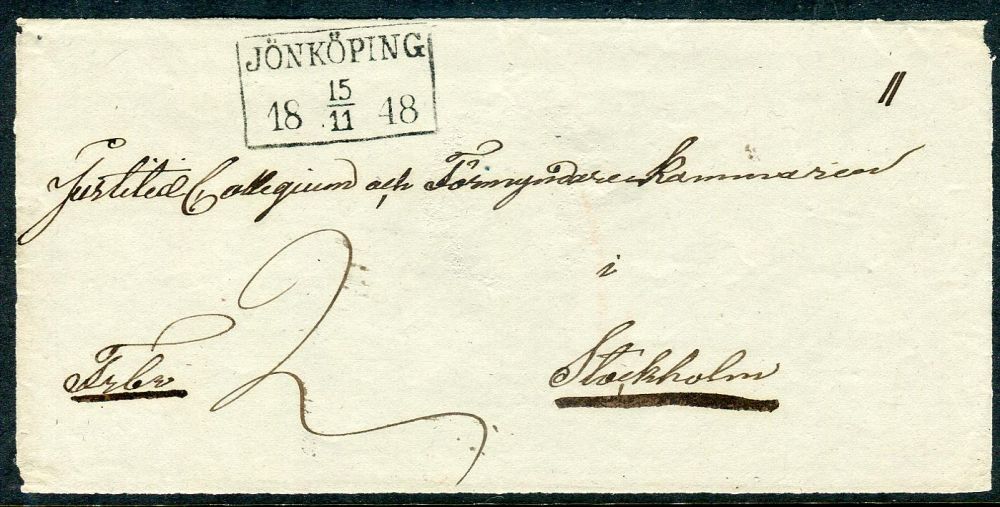 JÖNKÖPING
18 15/11 48
Justitiæ Collegium och Förmyndare Kammaren
i
Stockholm
Frbr
2